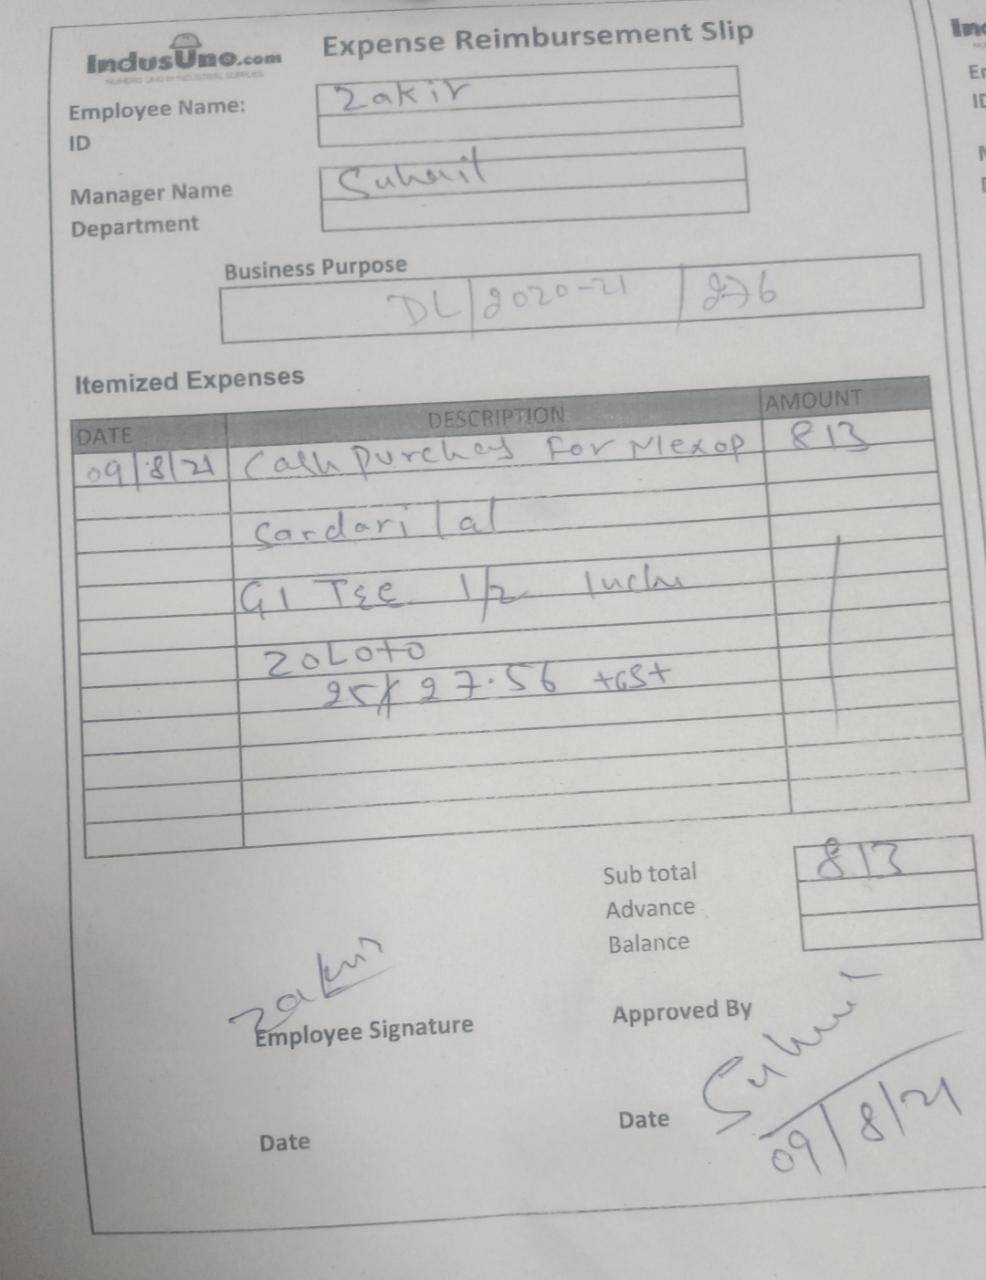 IndusUno.com
NUMERO UNO IN INDUSTRIAL SUPPLIES
Expense Reimbursement Slip
Employee Name: Zakir
ID
Manager Name Suhail
Department
Business Purpose
DL/2020-21/276
Itemized Expenses
DATE DESCRIPTION AMOUNT
09/8/21 Cash purchas For Mexop 813
Sardari lal
GI TEE 1/2 Inch
ZOLOTO
25/27.56 +GST
Sub total 813
Advance
Balance
Zakir
Employee Signature
Approved By
Suhail
Date
Date 09/8/21